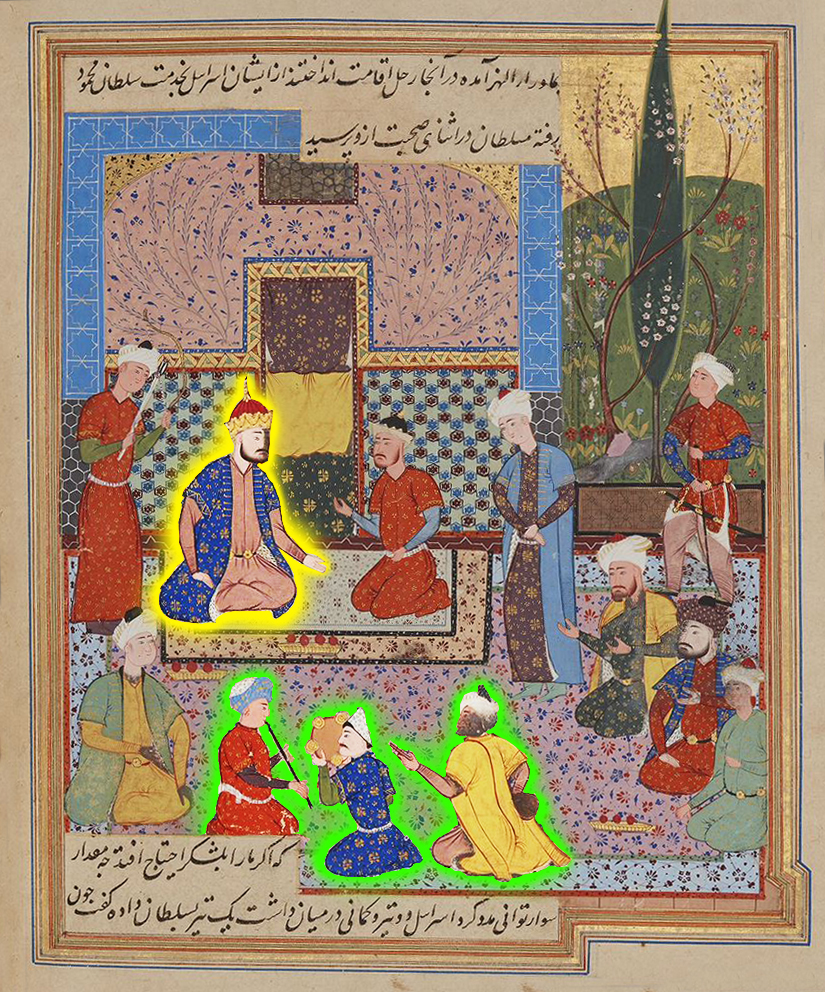 بماورارالنهر آمده در آنجا رحل اقامت انداختند از ایشان اسراسل بخدمت سلطان محمود
رفته سلطان در اثنای صحبت ازو پرسید
که اگر مارا بلشکر احتیاج افتد چه مقدار
سوار توانی مدد کرد اسراسل دو تیر و کمانی در میان داشت یک تیر بسلطان داده گفت چون